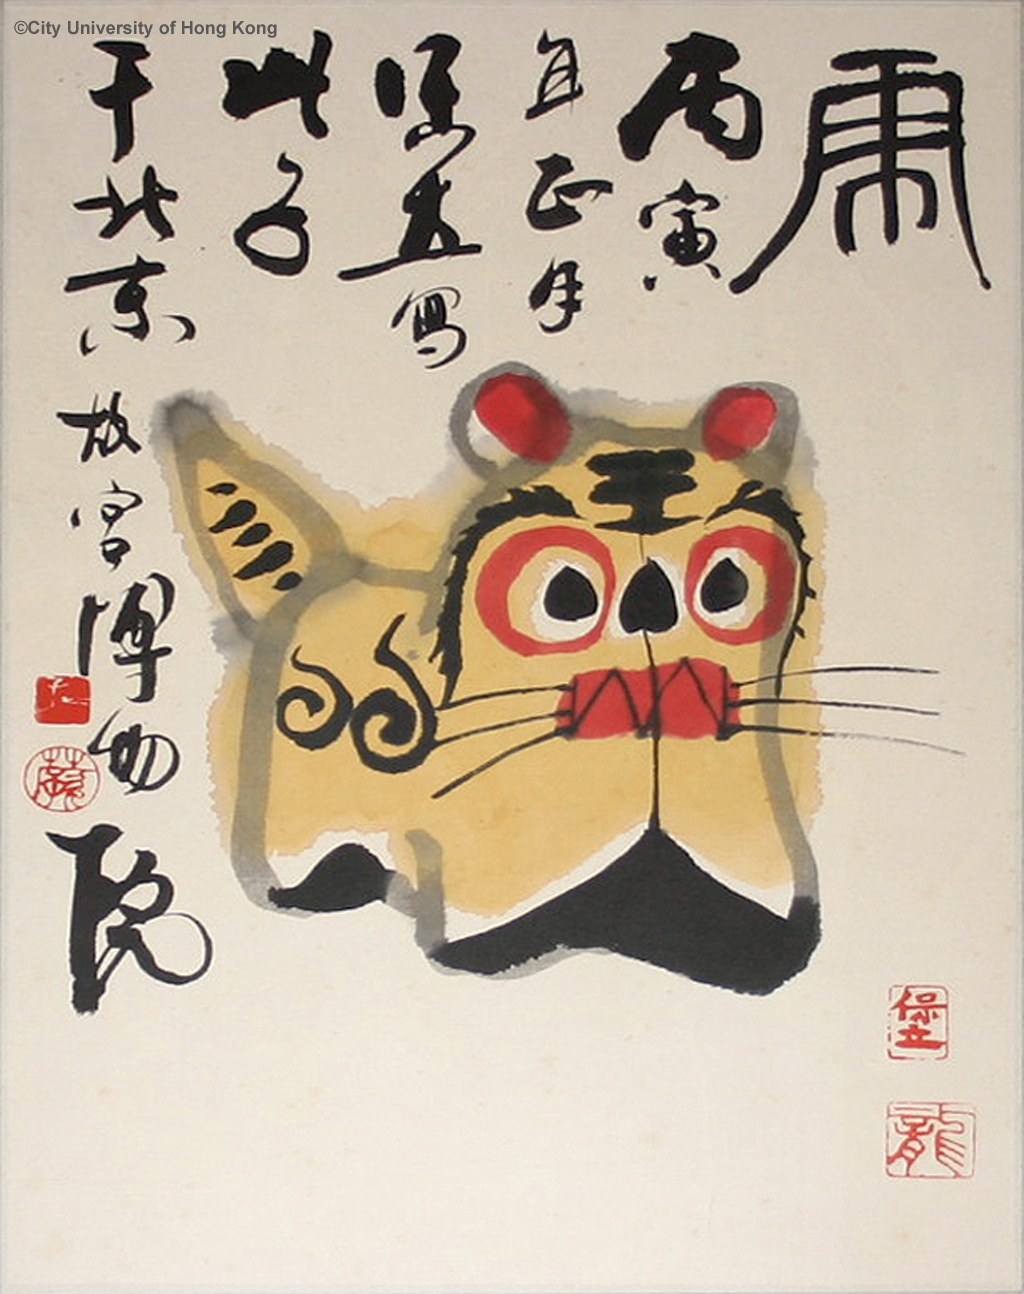 ©City University of Hong Kong
虎
丙寅
年正月
寫
于北京故宮博物院
龍